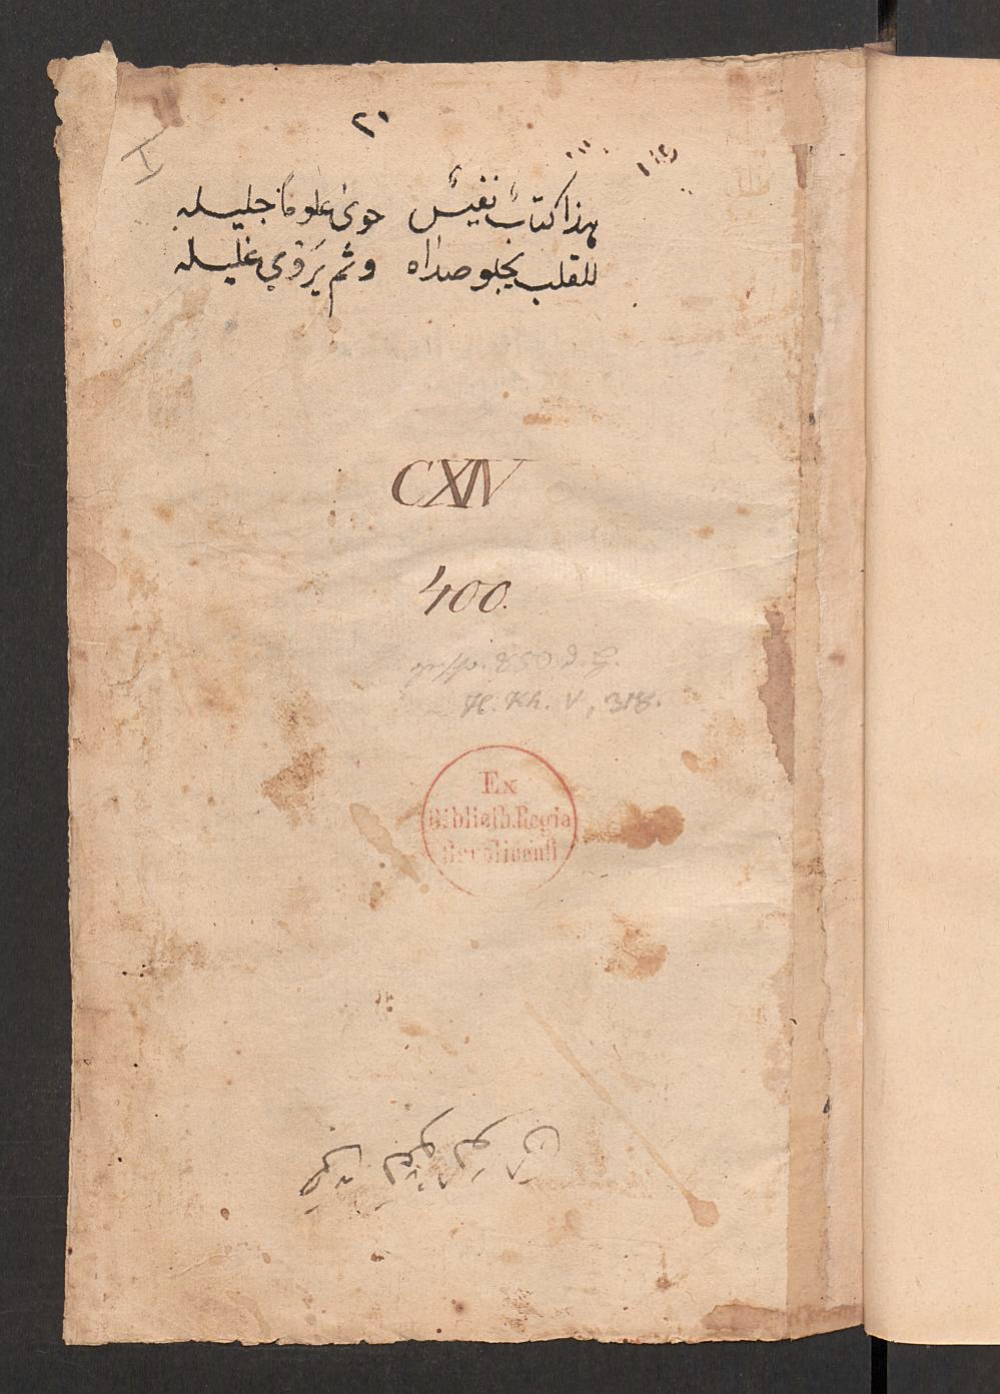 ٢٠
I
هذا كتابٌ نفيسٌ حوى علوما جليله
للقلب يجلو صداه وثم يَروي غليله
CXIV
400.
H. Kh. V, 318.
Ex
Biblioth. Regia
Berolinensi